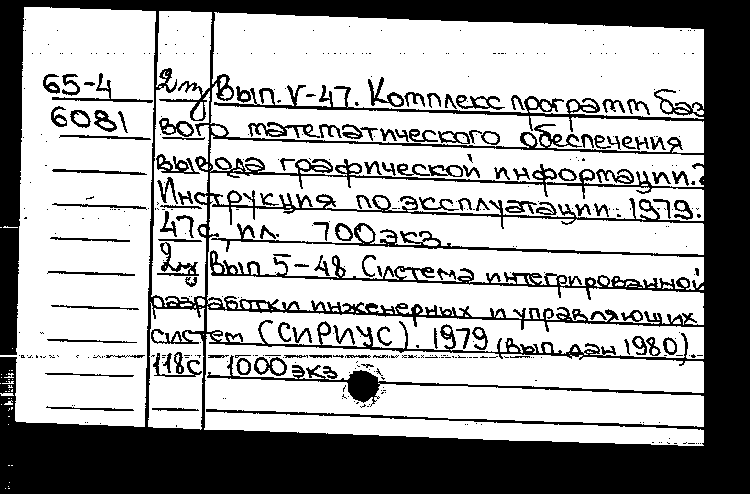 65-4 2 т Вып. V-47. Комплекс программ баз
6081 вого математического обеспечения
вывода графической информации.
Инструкция по эксплуатации. 1979.
47с. ил. 700 экз.
Вып. 5-48. Система интегрированной
разработки инженерных и управляющих
систем (СИРИУС). 1979 (вып. дан 1980).
118с. 1000 экз